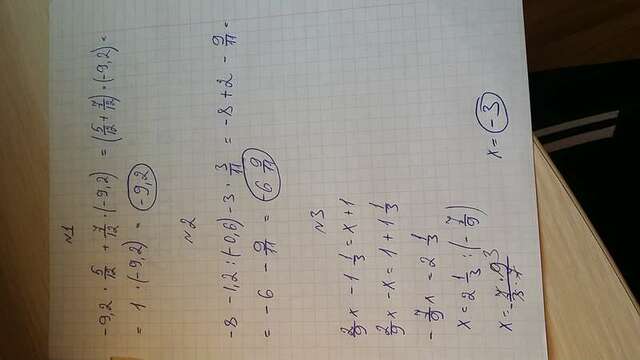 №1
-9,2 · 5/12 + 7/12 · (-9,2) = (5/12 + 7/12) · (-9,2) =
= 1 · (-9,2) = -9,2
№2
-8 - 1,2 : (-0,6) - 3 · 3/11 = -8 + 2 - 9/11 =
= -6 - 9/11 = -6 9/11
№3
2/9 x - 1 1/3 = x + 1
2/9 x - x = 1 + 1 1/3
- 7/9 x = 2 1/3
x = 2 1/3 : (- 7/9)
x = - 7 · 9 3 / 3 · 7
x = -3